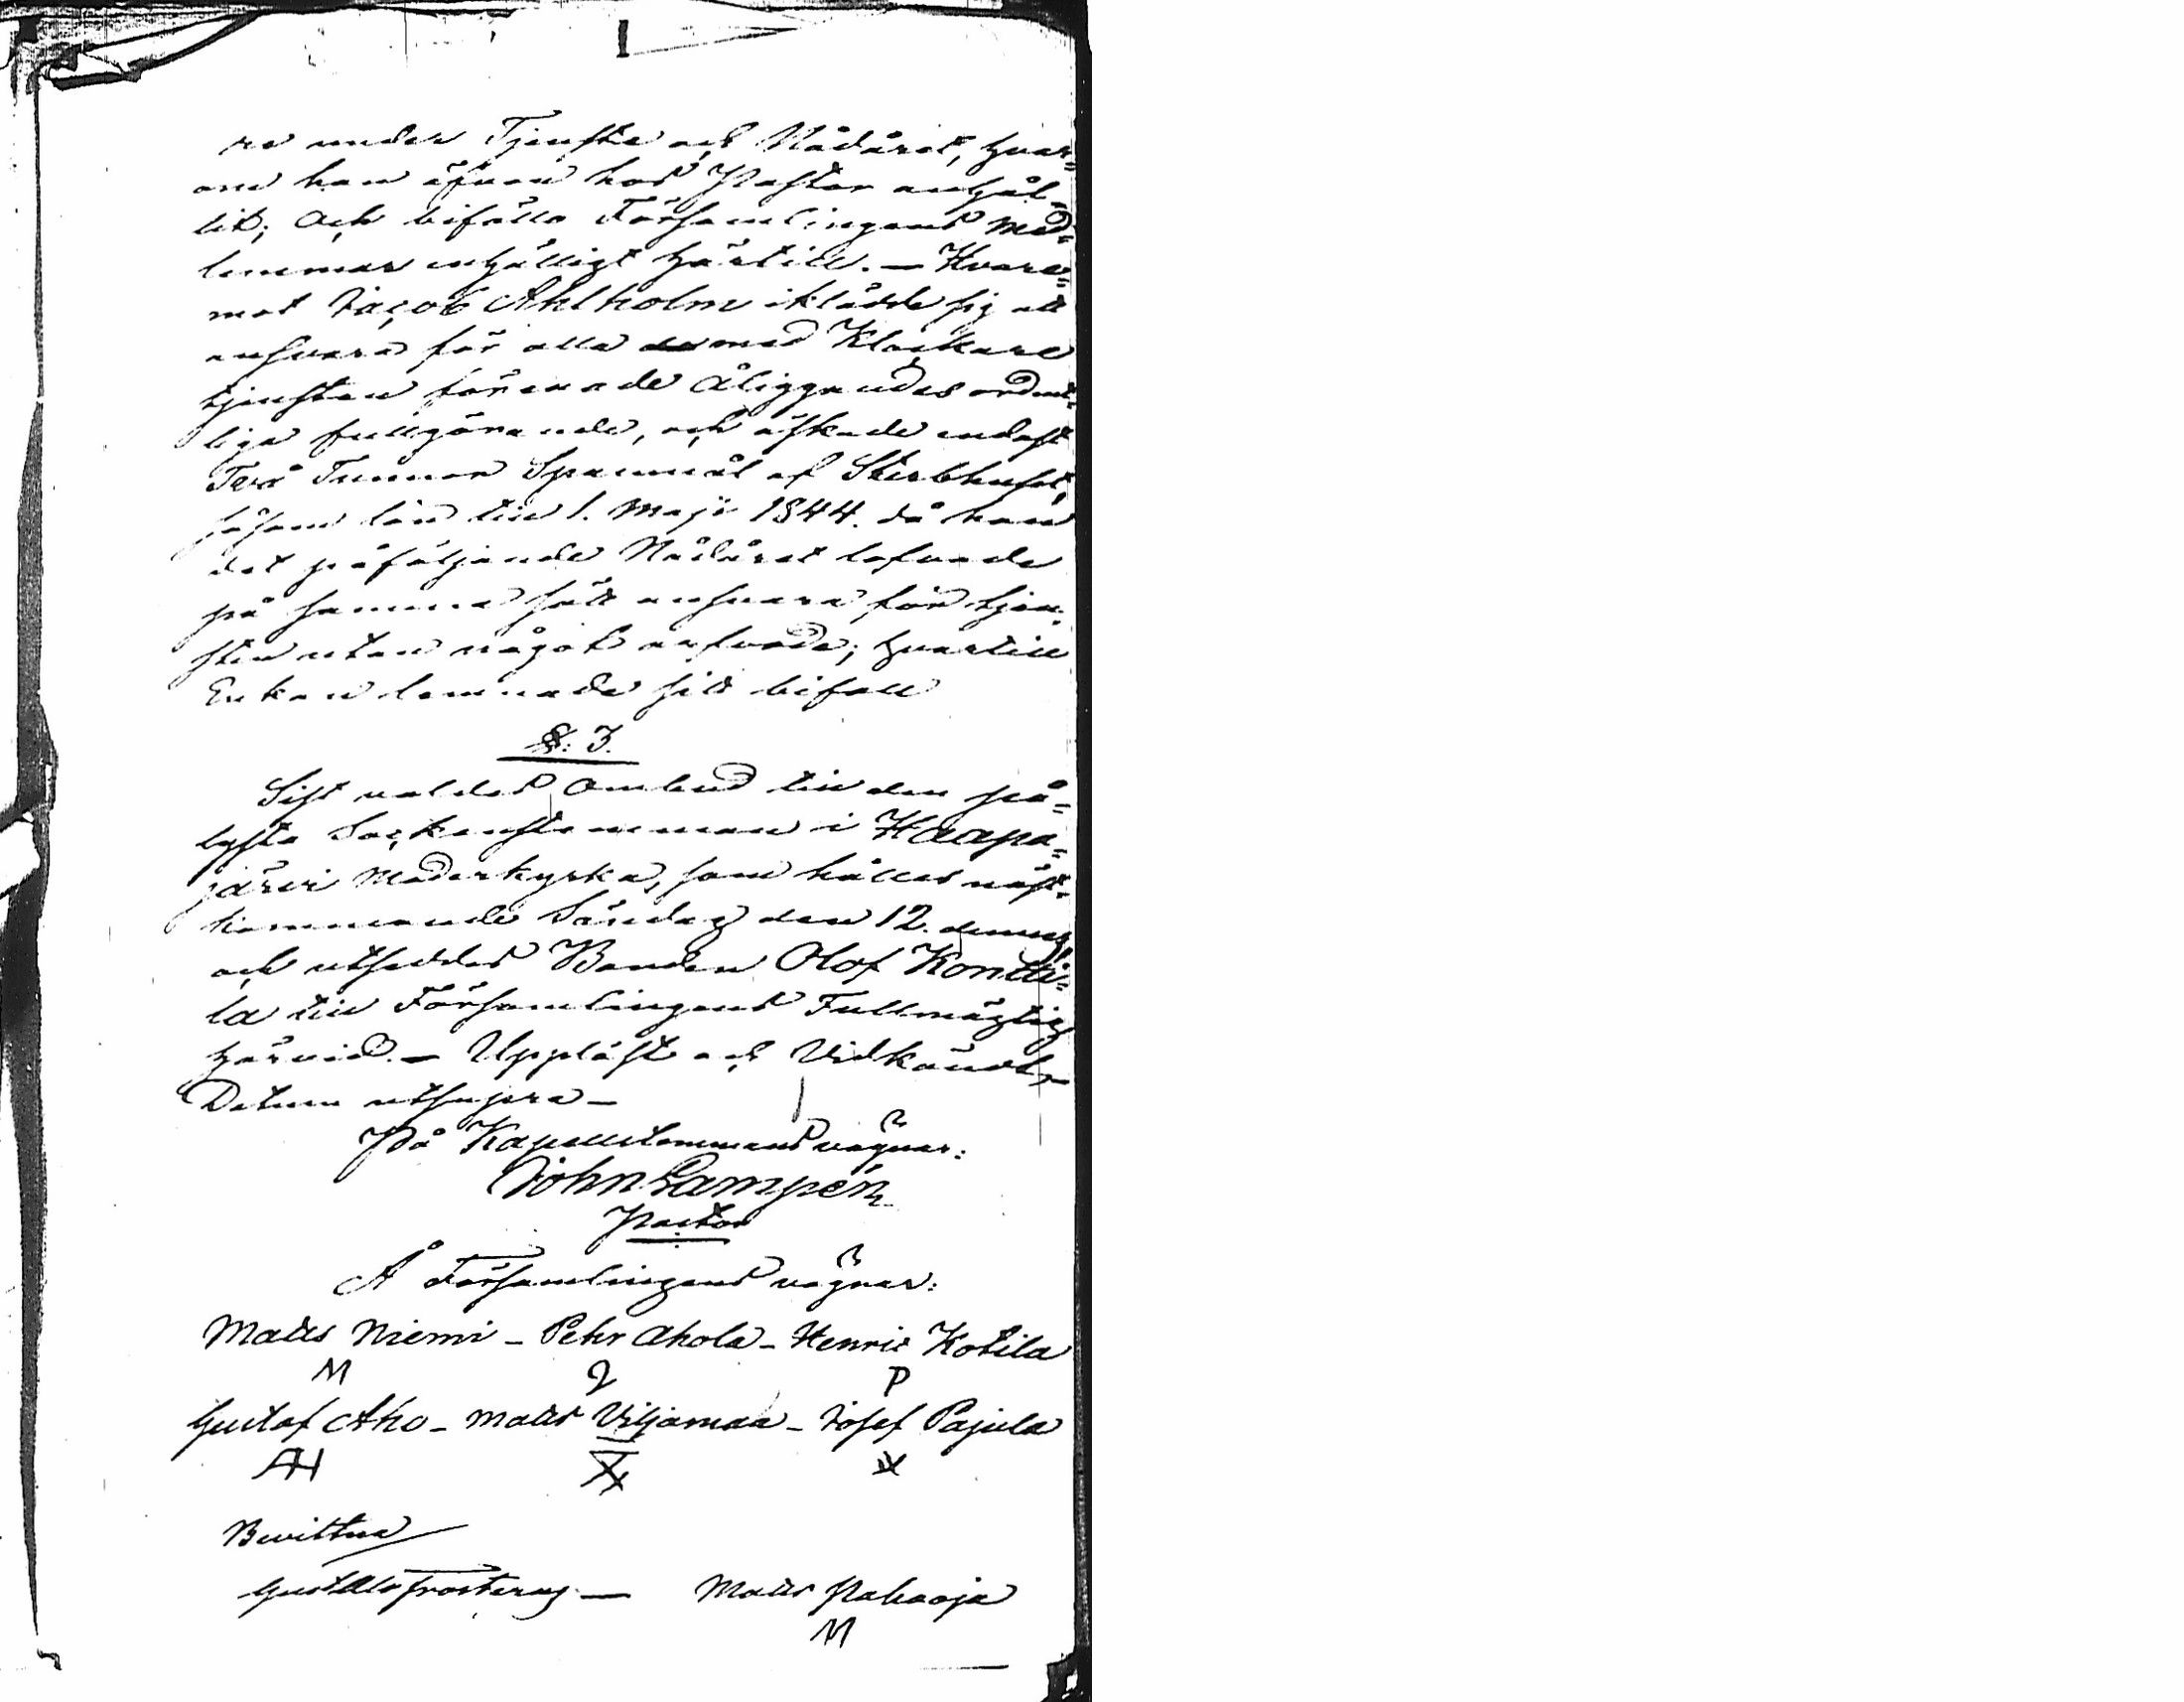 re under Tjenste och Nådåret, hvar=
om han äfven hos Pastor anhål-
lit; Och biföllo Församlingens Med=
lemmar enhälligt härtill. – Hvare=
mot Jacob Ahlholm iklädde sig att
ansvara för alla med Klockare
tjensten förenade åliggandes ordent=
liga fullgörande, och äskade endast
Två Tunnor Spannmål af Sterbhuset,
såsom lön till 1. Maji 1844. då han
det påföljande Nådåret lofvade
på samma sätt ansvara för tjen-
sten utan något arfvode; hvartill
Enkan lemnade sitt bifall
§: 3.
Sist valdes Ombud till den på=
lysta Sockenstemman i Haapa=
järvi Moderkyrka, som hålles näst=
kommande Söndag den 12. dennes,
och utseddes Bonden Olof Kontti=
la till Församlingens Fullmägtig
härvid. – Uppläst och Vidkändt,
Datum utsupra –
På Kapellstemmans vägnar:
John Lampén
Pastor
Å Församlingens vägnar:
Matts Niemi – Pehr Ahola – Henric Kotila
M P
Gustaf Aho – Matts Viljamaa – Josef Pajula
AH
Bevittna
Gust Frosterus – Matts Pahaoja
M